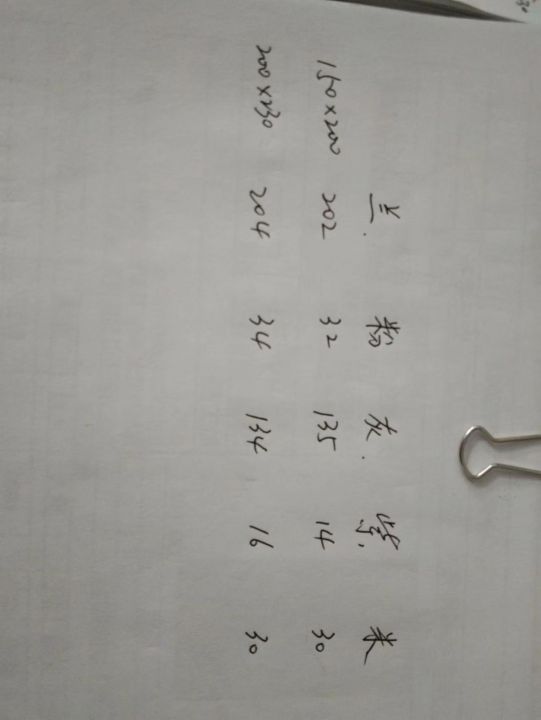 兰 粉 灰 紫 米
150×200 202 32 135 14 30
200×230 204 34 134 16 30